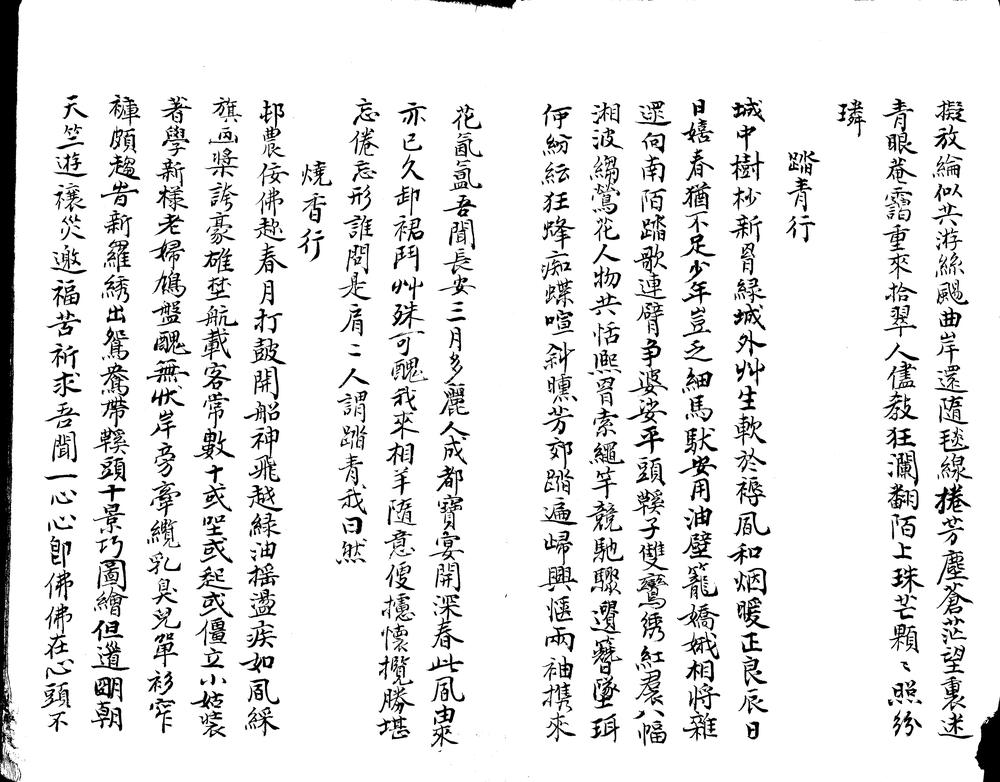 擬放綸似共游絲颺曲岸還隨毬線捲芳塵蒼茫望裏迷
青眼菴靄重來拾翠人儘教狂瀾翻陌上珠芒顆〻照紛
璘
踏青行
城中樹杪新罥綠城外艸生軟於褥風和烟暖正良辰日
日嬉春猶不足少年豈乏細馬馱安用油壁籠嬌娥相將雜
遝向南陌踏歌連臂爭婆娑平頭鞵子雙鸞綉紅裠八幅
湘波縐鶯花人物共恬熙罥索繩竿競馳驟遺簪墜珥
何紛紜狂蜂痴蝶喧斜曛芳郊踏遍歸興愜兩袖携來
花氤氳吾聞長安三月多麗人成都寶宴開深春此風由來
亦已久卸裙鬥艸殊可醜我來相羊隨意便攄懷攬勝堪
忘倦忘形誰問是肩〻人謂踏青我曰然
燒香行
邨農佞佛趁春月打鼓開船神飛越綠油搖盪疾如風綵
旗画槳誇豪雄埜航載客常數十或坐或起或僵立小姑裝
著學新樣老婦鳩盤醜無狀岸旁牽纜乳臭兒單衫窄
褲頗趨旹新羅綉出鴛鴦帶鞵頭十景巧圖繪但道明朝
天竺遊禳災邀福苦祈求吾聞一心心卽佛佛在心頭不